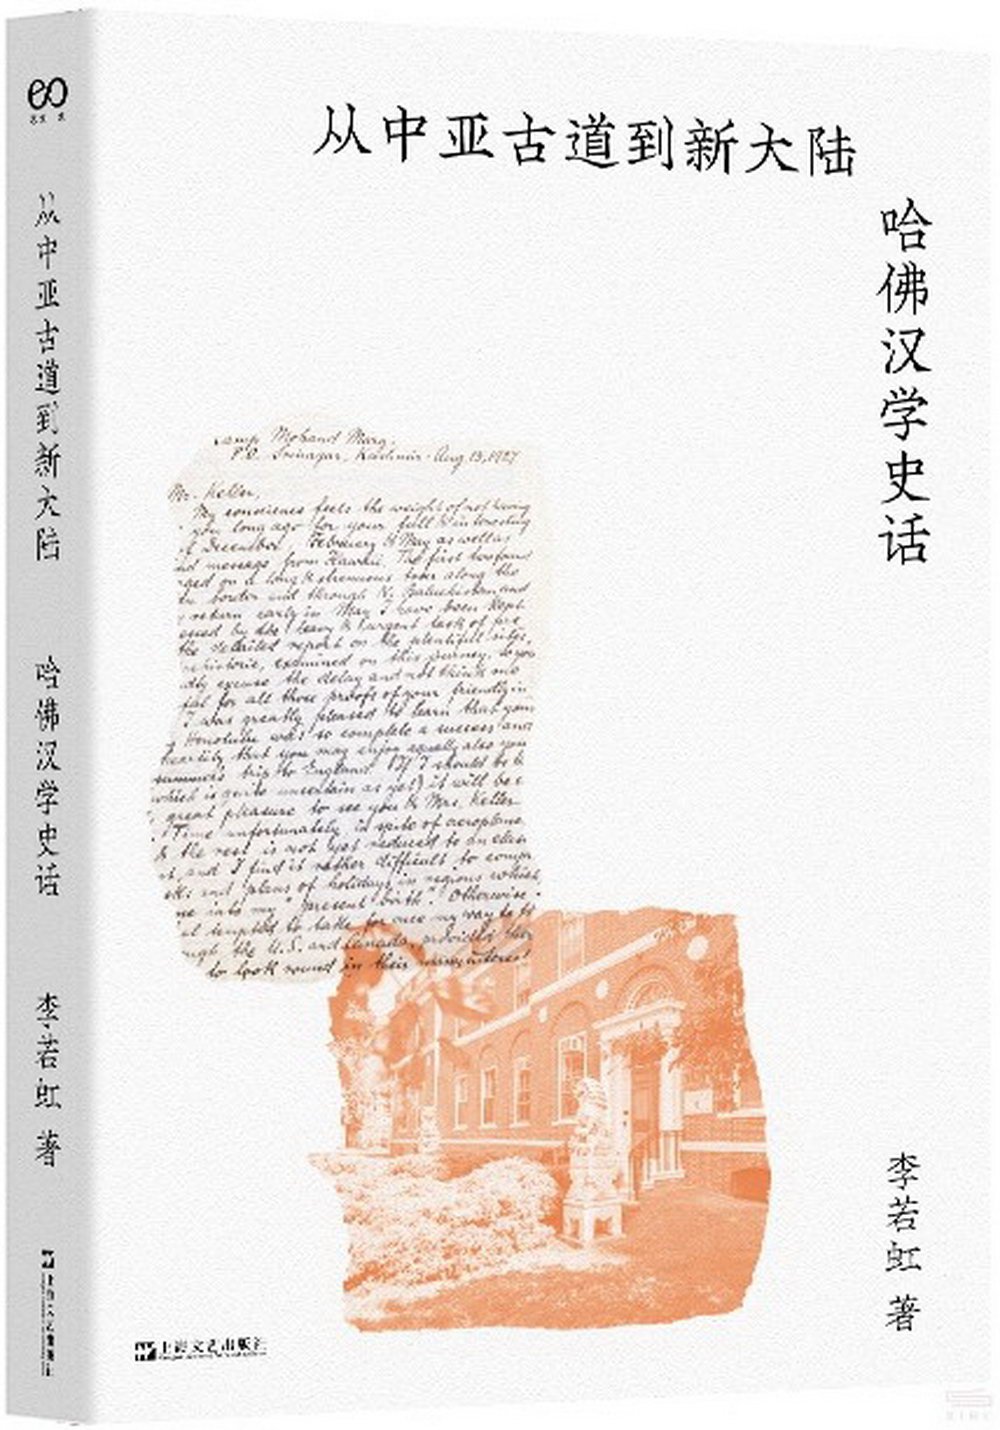 从中亚古道到新大陆
哈佛汉学史话
李若虹 著
上海文艺出版社
从中亚古道到新大陆 哈佛汉学史话 李若虹 著
上海文艺出版社
Camp Mohand Marg,
P.O. Srinagar, Kashmir. Aug 13, 1927
Mr. Keller,
My conscience feels the weight of not having
you long ago for your full & interesting
of December. February & May as well as
message from Hawaii. The first two found
on a long & strenuous tour along the
border and through N. Baluchistan, and
return early in May I have been kept
by the heavy & urgent task of
the detailed report on the plentiful sites,
examined on this journey. So you
excuse the delay and not think me
for all those proofs of your friendly
I was greatly pleased to learn that your
Honolulu was so complete a success and
heartily that you may enjoy equally also your
summer's trip to England. If I should be
which is quite uncertain as yet) it will be
great pleasure to see you & Mrs. Keller
Time unfortunately, in spite of aeroplane
& the rest is not yet reduced to an
and I find it rather difficult to
and plans of holidays in regions which
into my "present birth". Otherwise
tempted to take for once my way to
the U.S. and Canada, provided
to look round in their